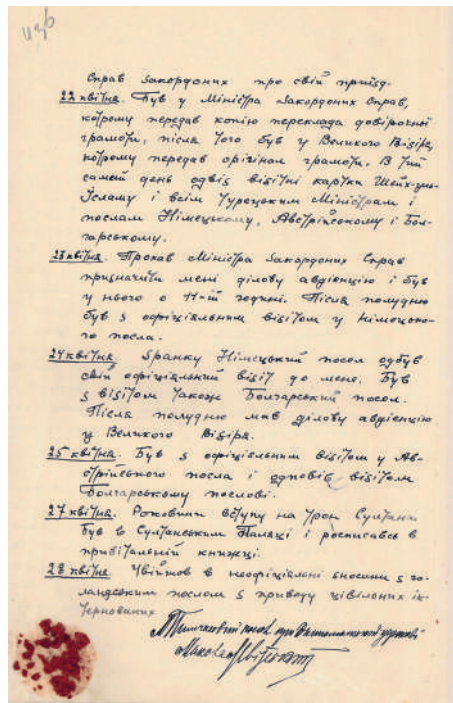 справ закордоних про свій приїзд.
22 квітня. Був у Міністра Закордоних Справ,
котрому передав копію переклада довірочної
грамоти, після чого був у Великого Візіря,
котрому передав орігінал грамоти. В той
самий день одвіз візітні картки Шейх-уль-
Ісламу і всім турецьким Міністрам і
послам Німецькому, Австрійському і Бол-
гарському.
23 квітня. Прохав Міністра Закордоних Справ
призначити мені ділову авдієнцію і був
у нього о 11-ій годині. Після полудню
був з офіціяльним візітом у Німецько-
го посла.
24 квітня. Зранку Німецький посол одбув
свій офіціяльний візіт до мене. Був
з візітом також Болгарський посол.
Після полудню мав ділову авдієнцію
у Великого Візіря.
25 квітня. Був з офіціяльним візітом у Ав-
стрійського посла і одповів візітом
Болгарському послові.
27 квітня. Роковини вступу на трон Султана
був в Султанським Палаці і росписавсь в
привітальній книжці.
28 квітня Увійшов в неофіціяльні зносини з го-
ландським послом з приводу цівільних ін-
тернованих
Тимчасовий посол при Оттоманській
Микола Левитський